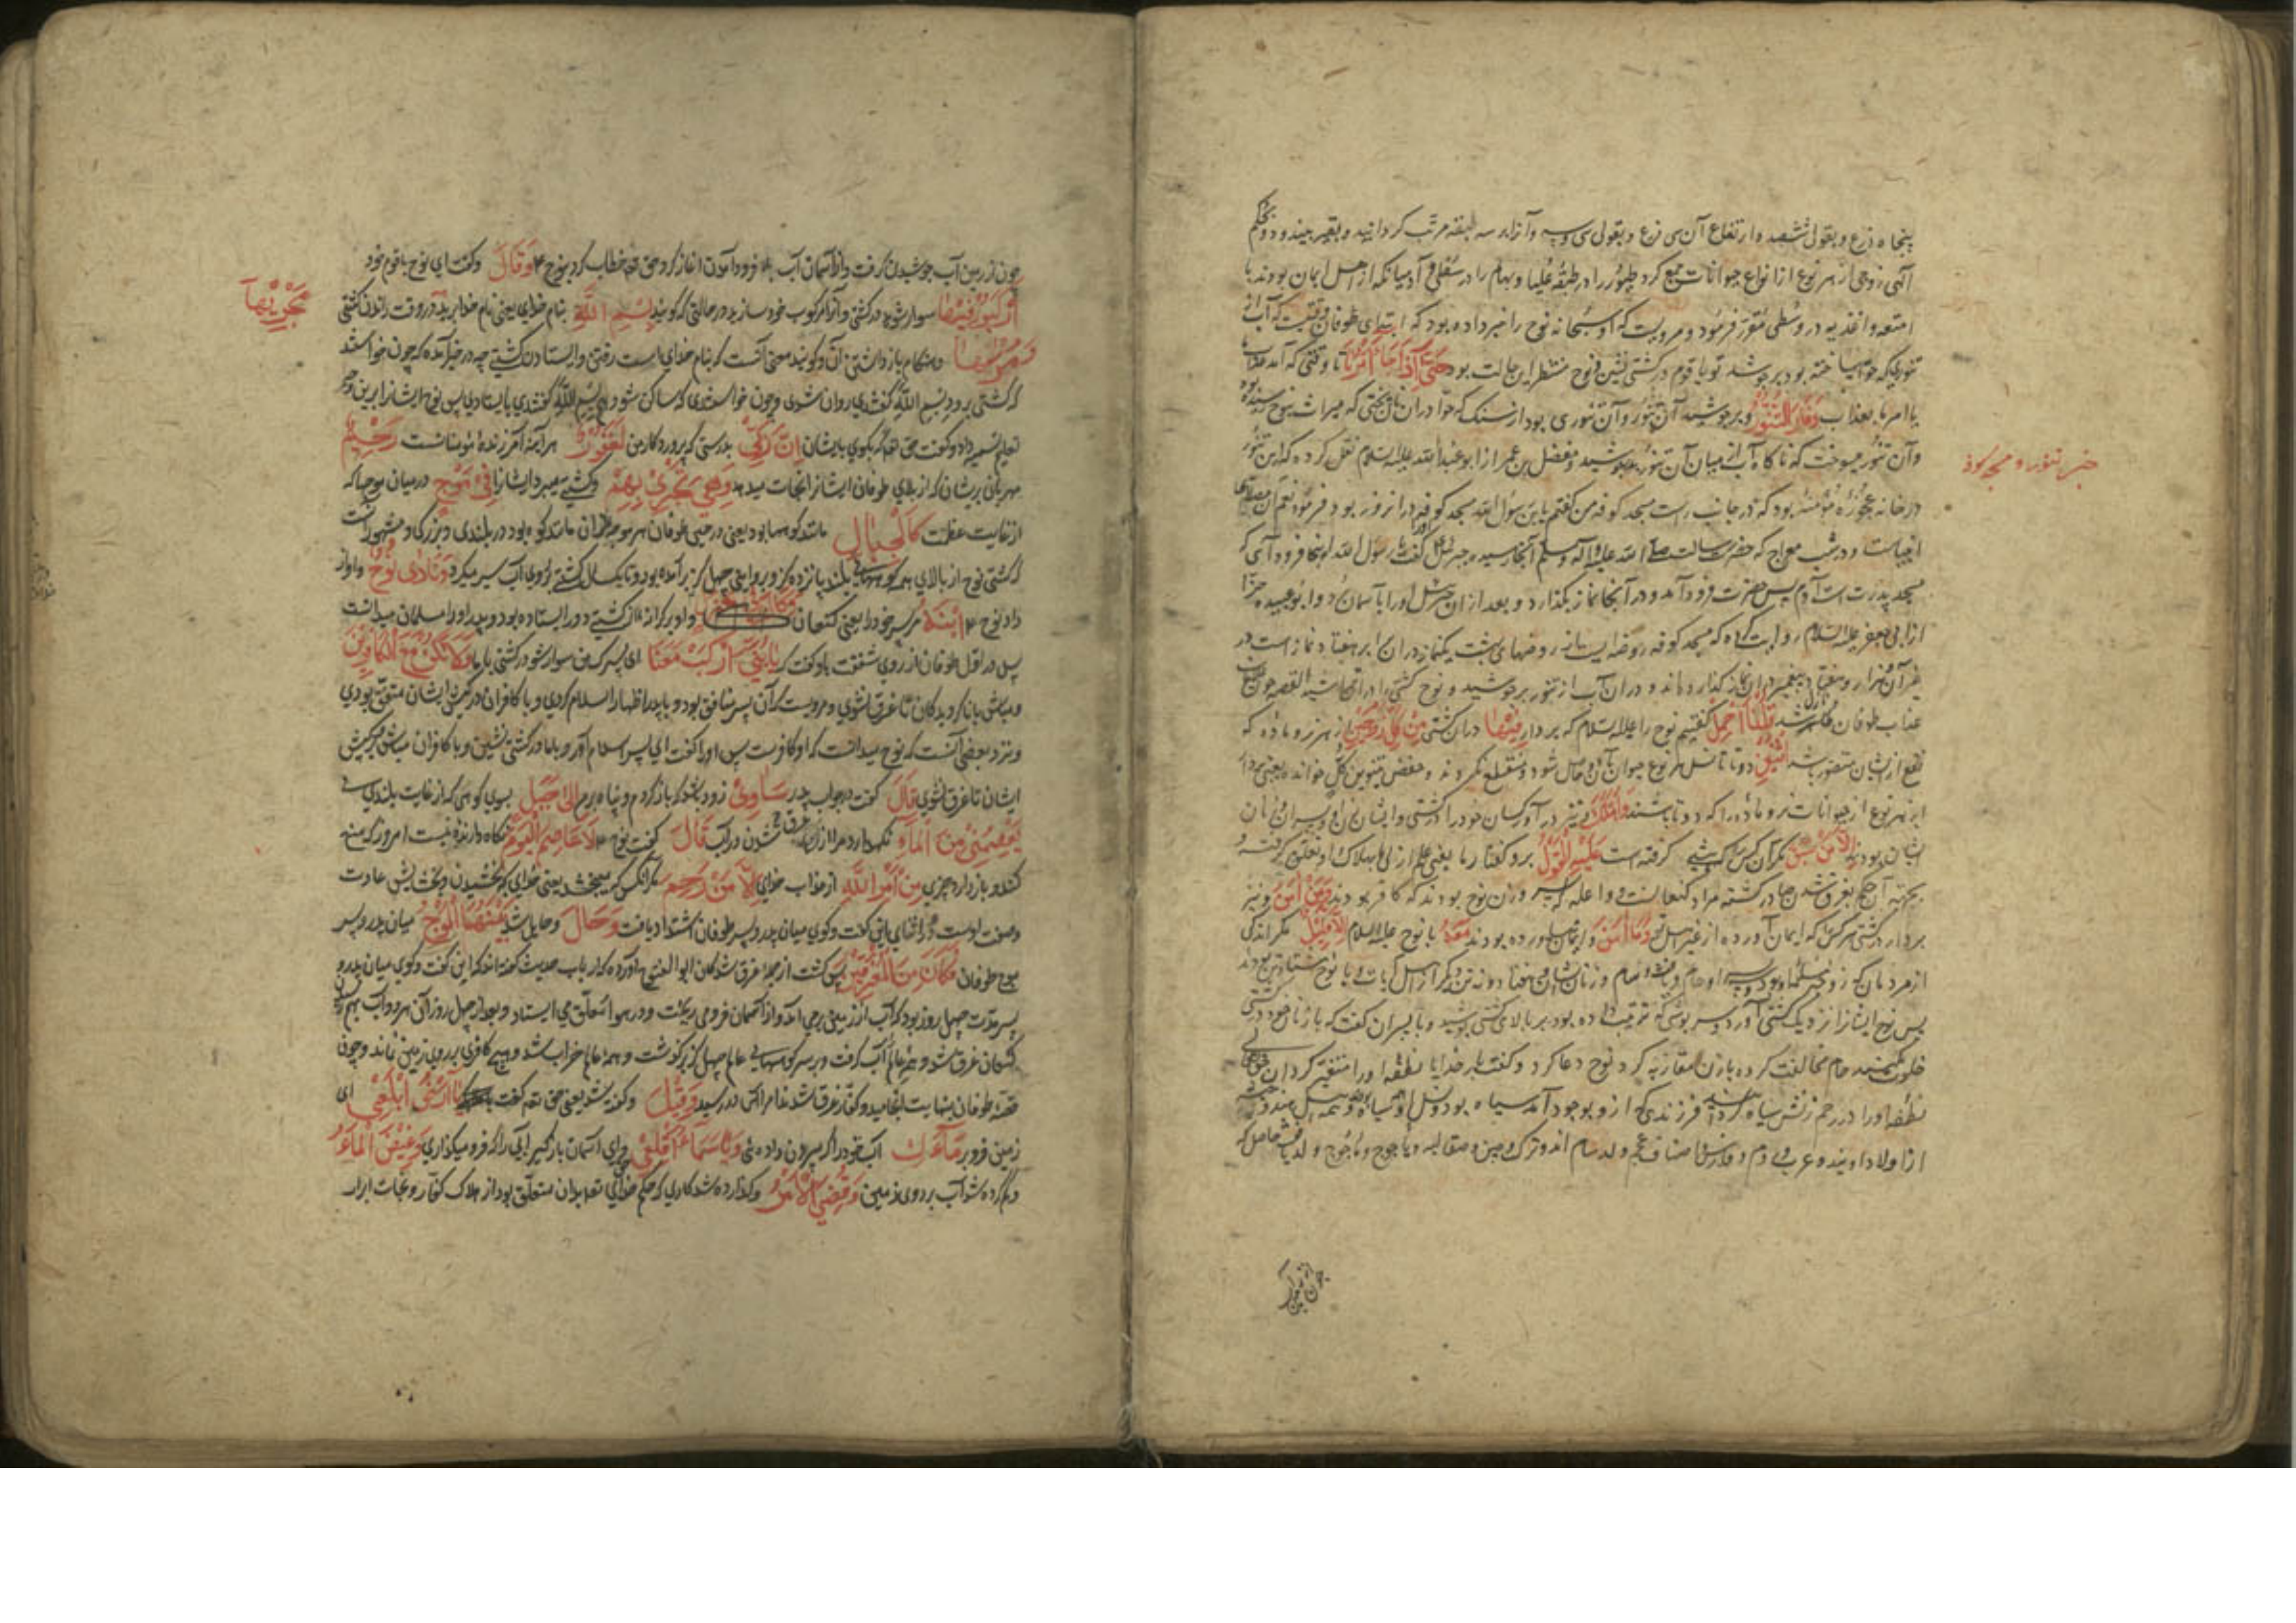 پنجاه ذرع و بقول ششصد و ارتفاع آن سی ذرع و بقولی سی و سه و آنرا بر سه طبقه مرتب گردانید و بقیر بیندود و بحکم
آلهی زوجی از هر نوع از انواع حیوانات جمع کرد طیور را در طبقهٔ علیا و بهائم را در سفلی و آدمیانکه از اهل ایمان بودند با
امتعه و اغذیه در وسطی مقرر فرمود و مرویست که او سبحانه نوح را خبر داده بود که ابتدای طوفان وقتیست که آب از
تنوریکه حوا ساخته بود برجوشد تو با قوم در کشتی نشین و نوح منتظر این حالت بود حَتّی اِذا جاءَ اَمرُنا تا وقتی که آمد عذاب ما
یا امر ما بعذاب وَفارَ التَّنُّورُ و برجوشید آن تنور و آن تنوری بود از سنگ که حوا در آن نان پختی که میراث بنوح رسیده بود
و آن تنور میسوخت که ناگاه آب از میان آن تنور برجوشید و مفضل بن عمر از ابو عبدالله علیه السلام نقل کرده که این تنور
در خانه عجوزهٔ مؤمنه بود که در جانب راست مسجد کوفه من گفتم یا بن رسول الله مسجد کوفه در انروز بود فرمود نعم آن مصلای
انبیاست و در شب معراج که حضرت رسالت صلی الله علیه و اله و سلم آنجا رسید جبرئیل گفت یا رسول الله اینجا فرود آی که
مسجد پدرت است آدم پس حضرت فرود آمد و در آنجا نماز بگذارد و بعد از ان جبرئیل او را باسمان برد و ابو عبیده حذا
از ابی جعفر علیه السلام روایت کرده که مسجد کوفه روضه ایست از روضهای بهشت یکنماز در ان برابر هفتاد نماز است در
غیر آن و هزار و هفتاد پیغمبر در ان نماز گذارده اند و در ان آب از تنور برجوشید و نوح کشتی را در آن تراشید القصه چون صبح
عذاب طوفان ظاهر شد قُلنَا احمِل گفتیم نوح را علیه السلام که بردار فیها در ان کشتی مِن کُلٍّ زَوجَینِ از هر نر و ماده که
نفع از ایشان متصور باشد اثنَینِ دو تا تا نسل هر نوع حیوان باقی شود و منقطع نگردد و حفص بتنوین کل خوانده یعنی بردار
از هر نوع از حیوانات نر و ماده را که دو تا باشند وَاَهلَکَ و نیز در آور کسان خود را در کشتی و ایشان زن او و پسران و زنان
ایشان بودند اِلّا مَن سَبَقَ مگر آن کس که پیشی گرفته است عَلَیهِ القَولُ برو گفتار ما یعنی علم ازلی ما بهلاک او تعلق گرفته و
بحتمیة آن حکم بغرق شدن جاری گشته مراد کنعانست و واعله که پسر و زن نوح بودند که کافر بودند وَمَن آمَنَ و نیز
بردار در کشتی هر کس که ایمان آورده از غیر اهل تو وَما آمَنَ و ایمان نیاورده بودند مَعَهُ با نوح علیه السلام اِلّا قَلیلٌ مگر اندکی
از مردمان که زوجه مسلمه او بود و سه پسر او حام و یافث و سام و زنان ایشان و هفتاد و دو تن دیگر از اهل بیت با نوح هشتاد تن بودند
پس نوح ایشانرا نزدیک کشتی آورد و سرپوشی که ترتیب داده بود بر بالای کشتی پوشید و با پسران گفت که با زنان خود در کشتی
خلوت مکنید حام مخالفت کرده با زن مقاربه کرد نوح دعا کرد و گفت بار خدایا نطفه او را متغیر گردان حق تعالی
نطفه او را در رحم زنش سیاه گردانید فرزندی که ازو بوجود آمد سیاه بود و نسل او سیاه و همه اهل هند و حبشه
از اولاد اویند و عرب و روم و فارس و اصناف عجم ولد سام اند و ترک و چین و صقالبه و یاجوج و ماجوج ولد یافث حاصل که
خبر تنور و مسجد کوفه
چون از زمین آب
چون از زمین آب جوشیدن گرفت و از آسمان آب بلا فرود آمدن اغاز کرد حق تعه خطاب کرد بنوح ع وَقالَ و گفت ای نوح با قوم خود
اِرکَبُوا فیها سوار شوید در کشتی و آنرا مرکوب خود سازید در حالتی که گویید بِسمِ اللّهِ بنام خدای یعنی نام خدا برید در وقت راندن کشتی
مَجریها
وَمُرسیها و هنگام بازداشتن آن و گویند معنی آنست که بنام خدای است رفتن و ایستادن کشتی چه در خبر آمده که چون خواستند
که کشتی برود بسم الله گفتندی روان شدی و چون خواستندی که ساکن شود هم بسم الله گفتندی بایستادی پس نوح ایشانرا برین وجه
تعلیم تسمیه داد و گفت حق تعه که بگوی بایشان اِنَّ رَبّی بدرستی که پروردگار من لَغَفُورٌ هر آینه آمرزندهٔ مؤمنانست رَحیمٌ
مهربان بریشان که از بلای طوفان ایشانرا نجات میدهد وَهِیَ تَجری بِهِم و کشتی میبرد ایشانرا فی مَوجٍ در میان موجها که
از غایت عظمت کَالجِبالِ مانند کوهها بود یعنی در حین طوفان هر موجه از ان مانند کوه بود در بلندی و بزرگی و مشهور است
که کشتی نوح از بالای همه کوههای بلند پانزده گز و بروایتی چهل گز برآمده بود و تا یکسال کشتی بر روی آب سیر میکرد وَنادی نُوحٌ و آواز
داد نوح ع اِبنَهُ مر پسر خود را یعنی کنعان وَکانَ فی مَعزِلٍ و او بر کرانه از کشتی دور ایستاده بود و پدر او را مسلمان میدانست
پس در اول طوفان از روی شفقت باو گفت که یا بُنَیَّ ارکَب مَعَنا ای پسرک من سوار شو در کشتی با ما وَلا تَکُن مَعَ الکافِرینَ
و مباش با ناگرویدگان تا غرق نشوی و مرویست که آن پسر منافق بود و با پدر اظهار اسلام کردی و با کافران در کیش ایشان متفق بودی
و نزد بعضی آنست که نوح میدانست که او کافرست پس او را گفت ای پسر اسلام آور و با ما در کشتی نشین و با کافران مباش در کیش
ایشان تا غرق نشوی قالَ گفت در جواب پدر سَآوی زود باشد که بازگردم و پناه برم اِلی جَبَلٍ بسوی کوهی که از غایت بلندی
یَعصِمُنی مِنَ الماءِ نگهدارد مرا از غرق شدن در آب قالَ گفت نوح ع لا عاصِمَ الیَومَ نگاه دارنده نیست امروز که منع
کند و باز دارد چیزی مِن اَمرِ اللّهِ از عذاب خدای اِلّا مَن رَحِمَ مگر آنکس که میبخشد یعنی خدای که بخشیدن و بخشایش عادت
و صفت اوست و در اثنای این گفت و گوی میان پدر و پسر طوفان اشتداد یافت وَحالَ و حایل شد بَینَهُمَا المَوجُ میان پدر و پسر
موج طوفان فَکانَ مِنَ المُغرَقینَ پس گشت از جمله غرق شدگان ابو الفتح آورده که ارباب حدیث گفته اند که این گفت و گوی میان پدر و
پسر مدت چهل روز بود که آب از زمین برمی آمد و از آسمان فرو می ریخت و در هوا متعلق می ایستاد و بعد از چهل روز آن هر دو آب بهم
کنعان غرق شد و همه عالم آب گرفت و بر سر کوههای عالم چهل گز برگذشت و همه عالم خراب شد و هیچ کافری بر روی زمین نماند و چون
قصه طوفان بنهایت انجامید و کفار غرق شدند امر الهی در رسید وَقیلَ و گفته شد یعنی حق تعه گفت یا اَرضُ ابلَعی ای
زمین فرو بر ماءَکِ آب خود را که بیرون داده ئی وَیا سَماءُ اَقلِعی و ای آسمان باز گیر آبی را که فرو میگذاری وَغیضَ الماءُ
و کم کرده شد آب بر روی زمین وَقُضِیَ الاَمرُ و گذارده شد کاری که حکم خدای تعه بدان متعلق بود از هلاک کفار و نجات ابرار